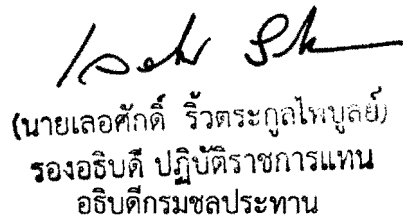 (นายเลอศักดิ์ ริ้วตระกูลไพบูลย์)
รองอธิบดี ปฏิบัติราชการแทน
อธิบดีกรมชลประทาน